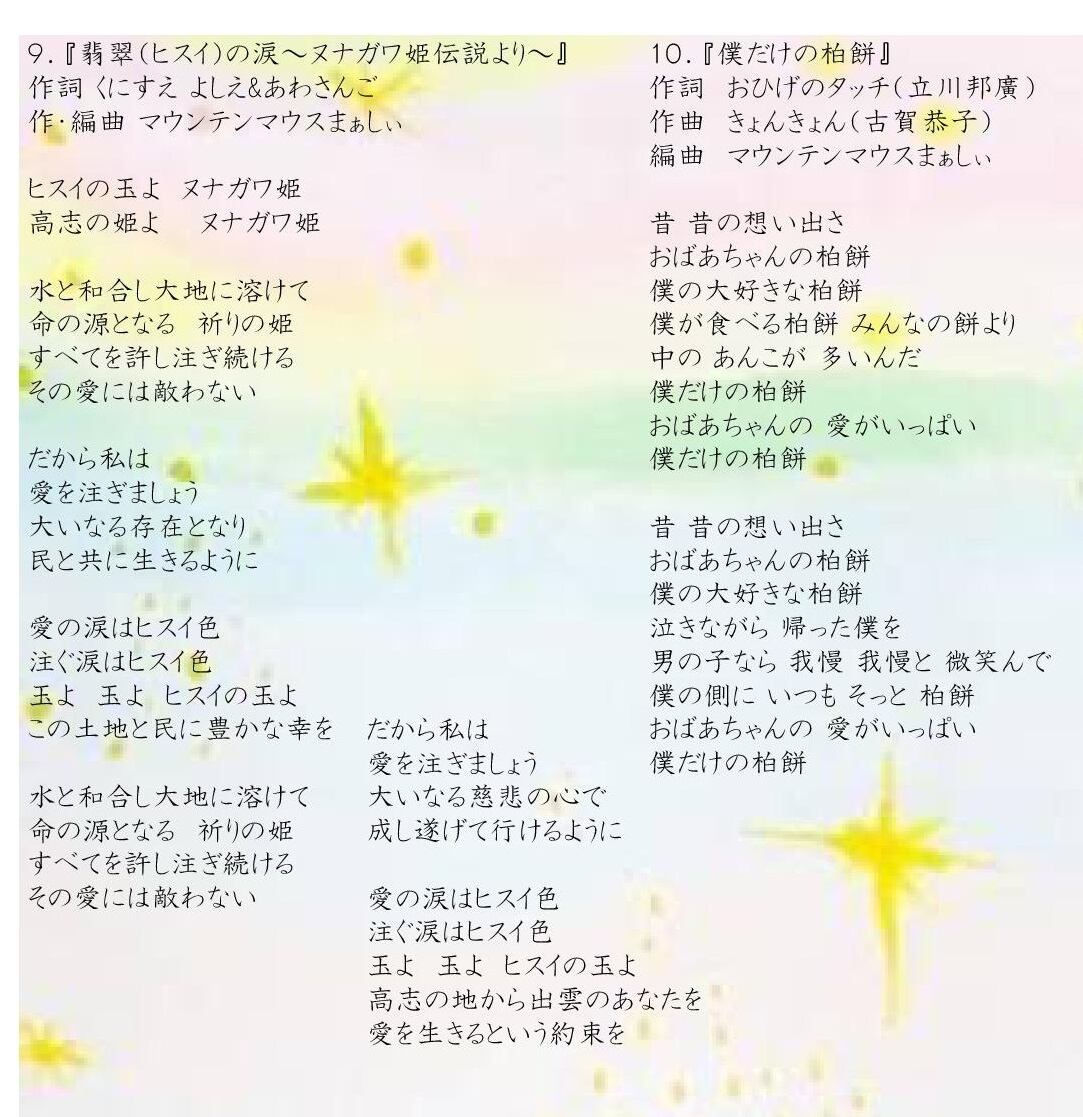 9.『翡翠(ヒスイ)の涙～ヌナガワ姫伝説より～』
作詞 くにすえ よしえ&あわさんご
作・編曲 マウンテンマウスまぁしぃ
ヒスイの玉よ ヌナガワ姫
高志の姫よ ヌナガワ姫
水と和合し大地に溶けて
命の源となる 祈りの姫
すべてを許し注ぎ続ける
その愛には敵わない
だから私は
愛を注ぎましょう
大いなる存在となり
民と共に生きるように
愛の涙はヒスイ色
注ぐ涙はヒスイ色
玉よ 玉よ ヒスイの玉よ
この土地と民に豊かな幸を
水と和合し大地に溶けて
命の源となる 祈りの姫
すべてを許し注ぎ続ける
その愛には敵わない
だから私は
愛を注ぎましょう
大いなる慈悲の心で
成し遂げて行けるように
愛の涙はヒスイ色
注ぐ涙はヒスイ色
玉よ 玉よ ヒスイの玉よ
高志の地から出雲のあなたを
愛を生きるという約束を
10.『僕だけの柏餅』
作詞 おひげのタッチ(立川邦廣)
作曲 きょんきょん(古賀恭子)
編曲 マウンテンマウスまぁしぃ
昔 昔の想い出さ
おばあちゃんの柏餅
僕の大好きな柏餅
僕が食べる柏餅 みんなの餅より
中の あんこが 多いんだ
僕だけの柏餅
おばあちゃんの 愛がいっぱい
僕だけの柏餅
昔 昔の想い出さ
おばあちゃんの柏餅
僕の大好きな柏餅
泣きながら 帰った僕を
男の子なら 我慢 我慢と 微笑んで
僕の側に いつも そっと 柏餅
おばあちゃんの 愛がいっぱい
僕だけの柏餅